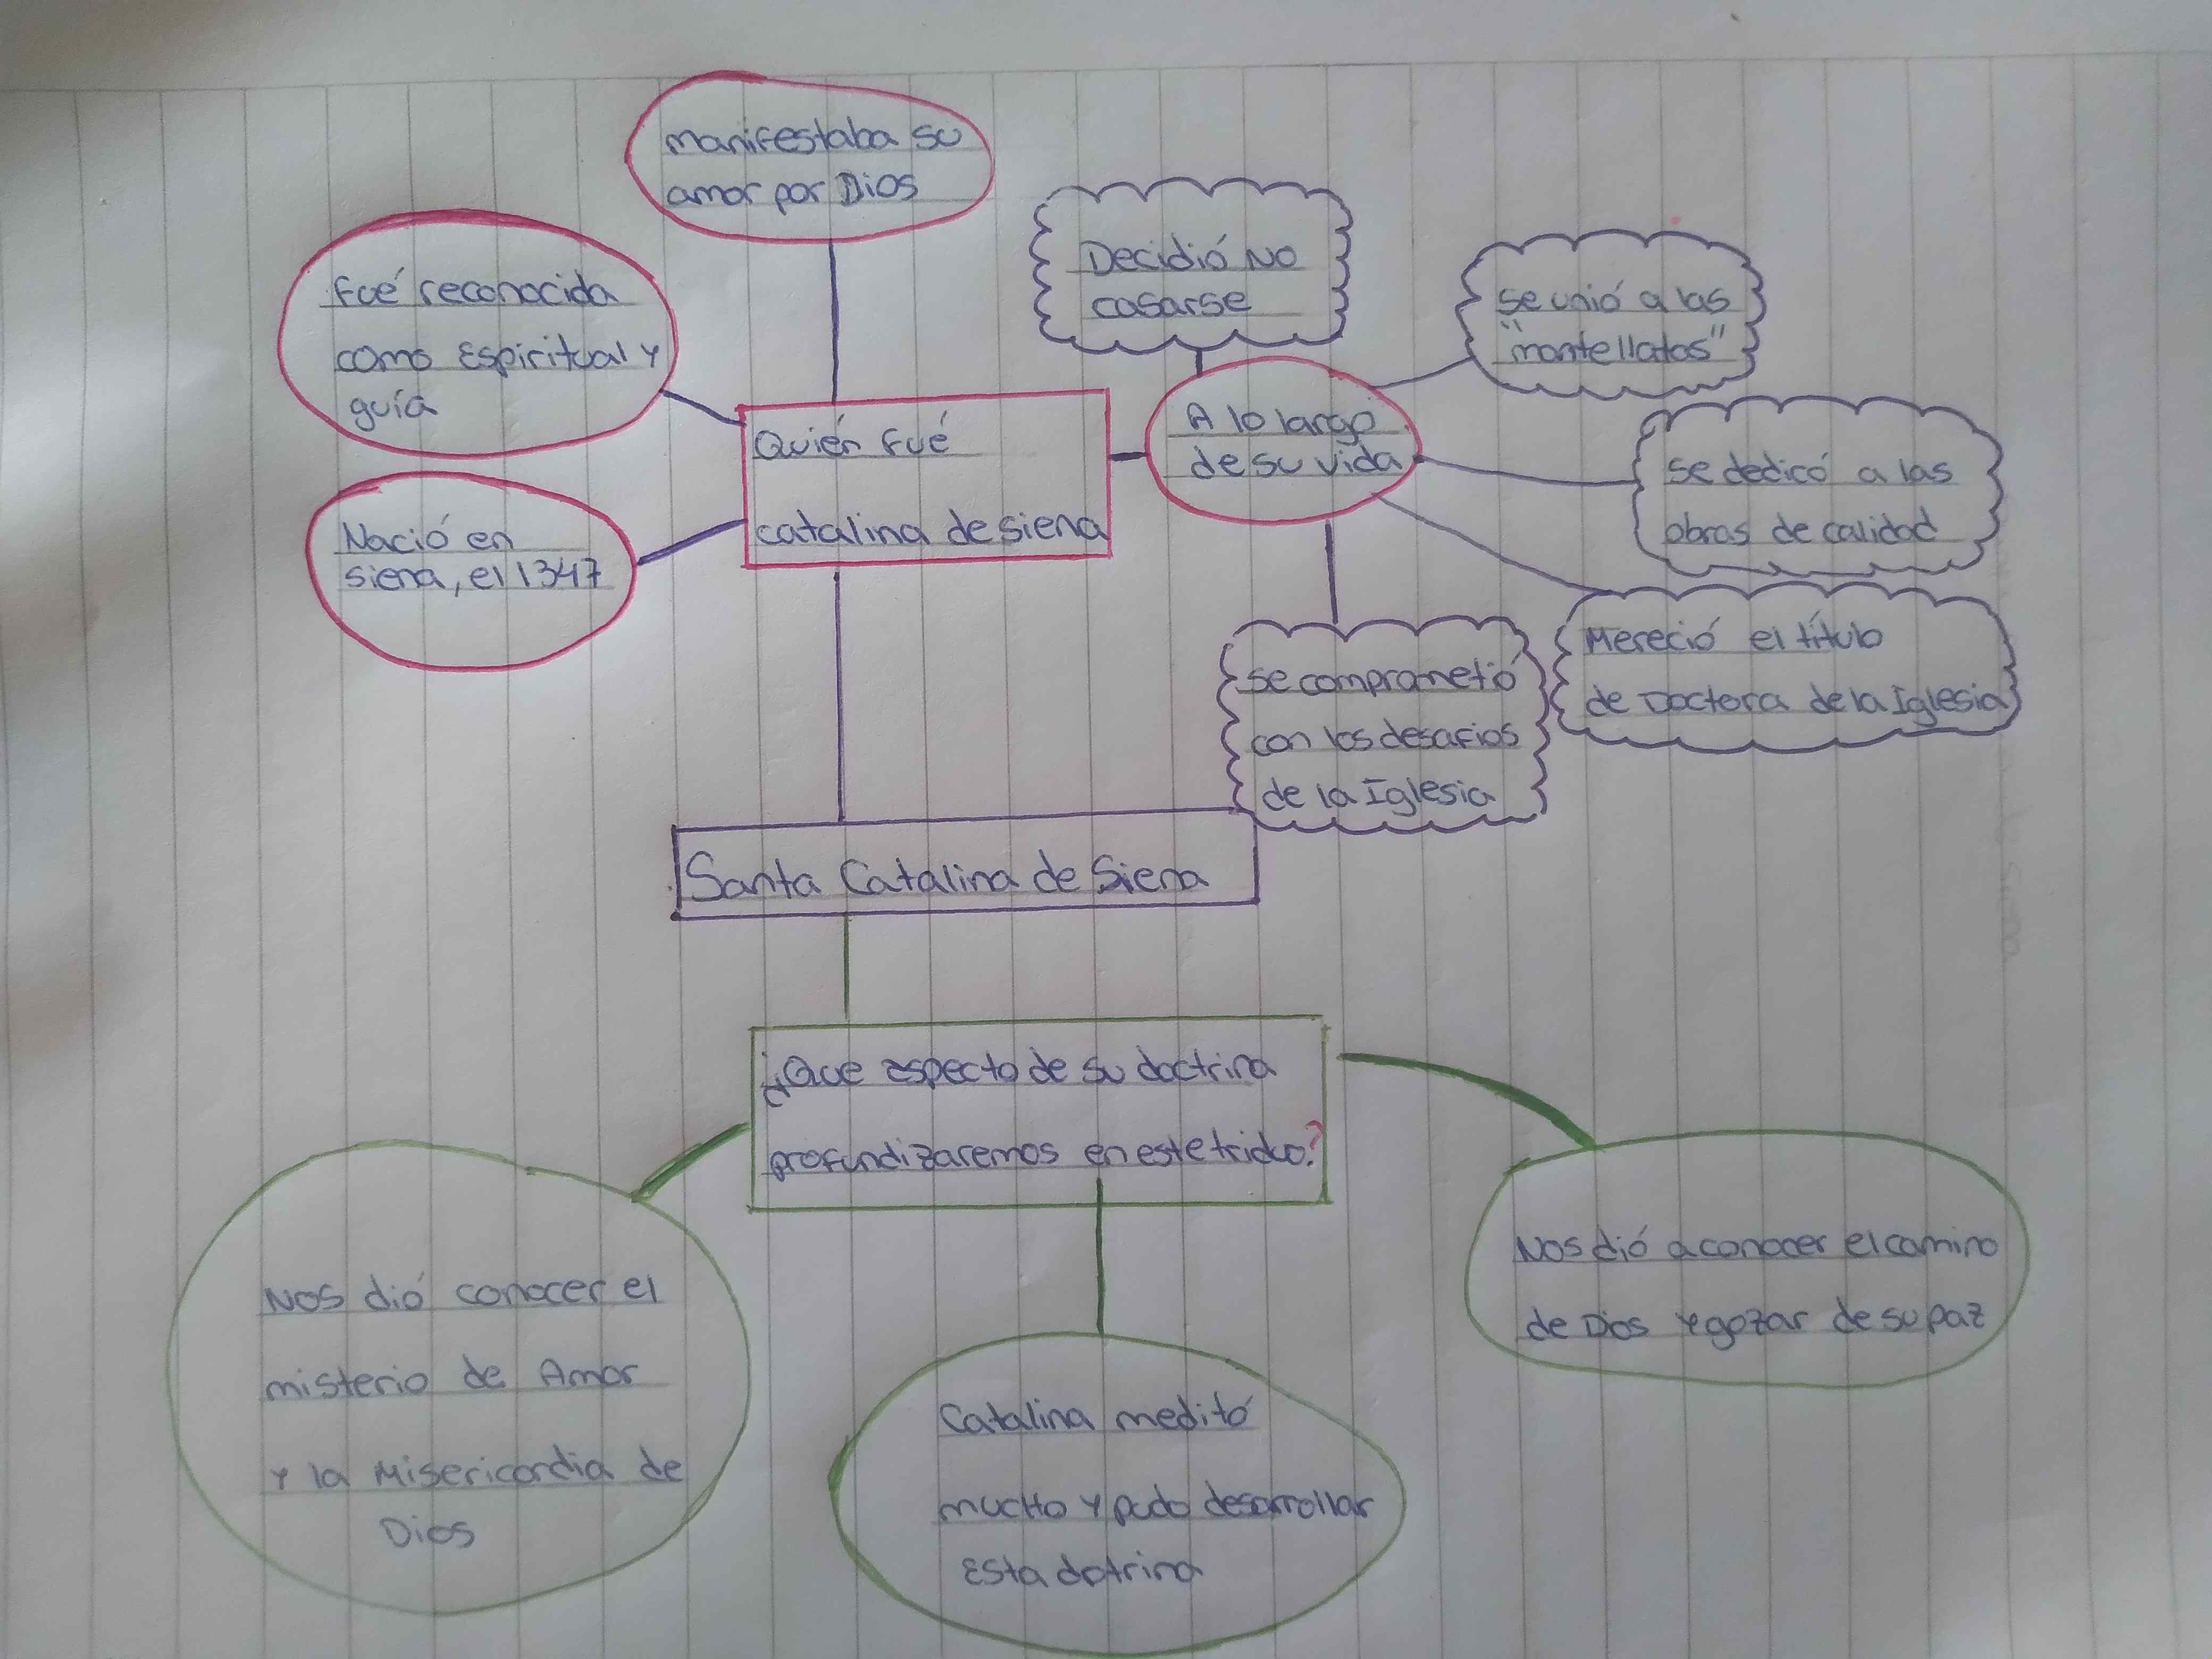 manifestaba su
amor por Dios
Fué reconocida
como Espiritual y
guía
Nació en
siena, el 1347
Quién Fué
catalina de siena
A lo largo
de su vida
Decidió No
casarse
se unió a las
"mantellatas"
se dedicó a las
obras de calidad
Mereció el título
de Doctora de la Iglesia
se comprometió
con los desafíos
de la Iglesia
Santa Catalina de Siena
¿Que aspecto de su doctrina
profundizaremos en este triduo?
Nos dió conocer el
misterio de Amor
y la Misericordia de
Dios
Catalina meditó
mucho y pudo desarrollar
Esta dotrina
Nos dió a conocer el camino
de Dios y gozar de su paz